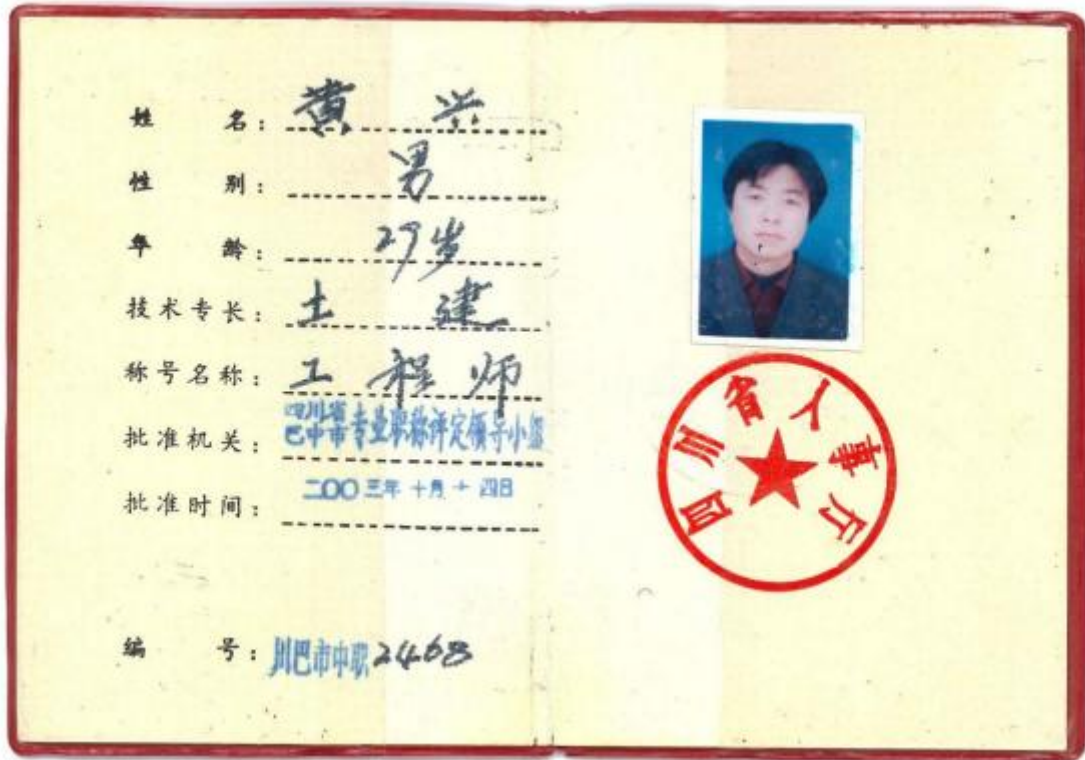 姓 名：黄 兴
性 别：男
年 龄：29岁
技术专长：土 建
称号名称：工 程 师
批准机关：四川省巴中市专业职称评定领导小组
批准时间：二〇〇三年十月十四日
编 号：川巴市中职2468
四川省人事厅